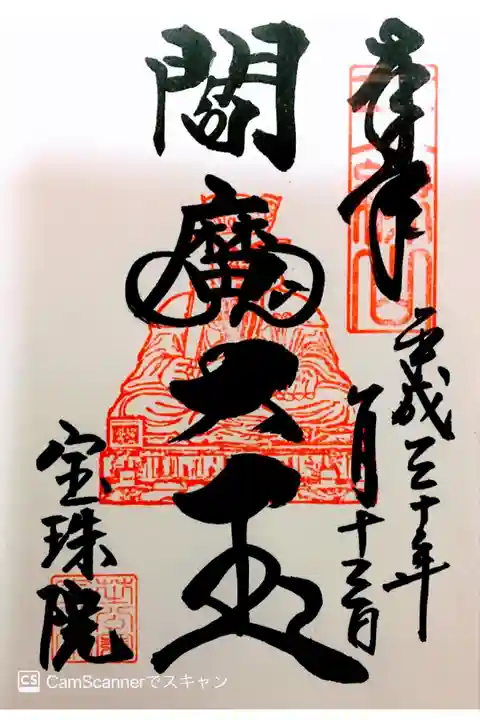 奉拝
平成三十年
月十三日
閻魔大王
宝珠院
CS CamScannerでスキャン